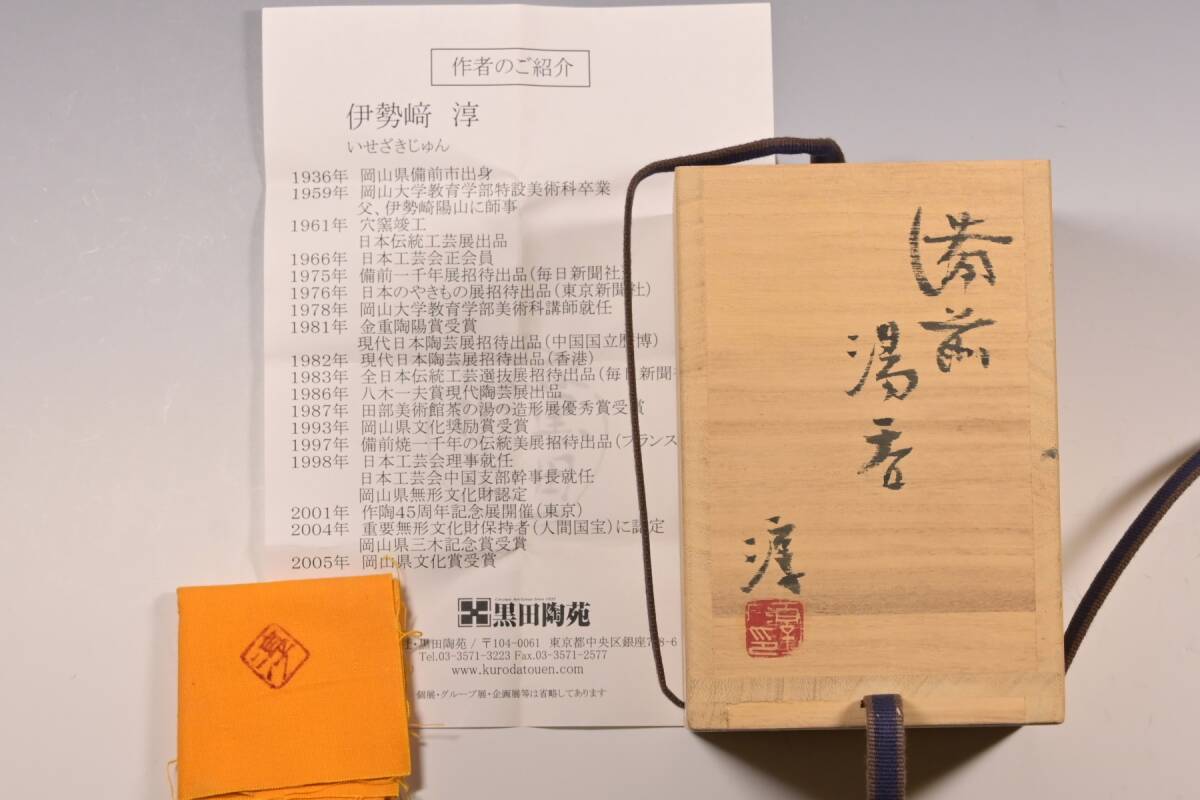 作者のご紹介
伊勢﨑 淳
いせざきじゅん
1936年 岡山県備前市出身
1959年 岡山大学教育学部特設美術科卒業
父、伊勢崎陽山に師事
1961年 穴窯竣工
日本伝統工芸展出品
1966年 日本工芸会正会員
1975年 備前一千年展招待出品(毎日新聞社)
1976年 日本のやきもの展招待出品(東京新聞社)
1978年 岡山大学教育学部美術科講師就任
1981年 金重陶陽賞受賞
現代日本陶芸展招待出品(中国国立歴博)
1982年 現代日本陶芸展招待出品(香港)
1983年 全日本伝統工芸選抜展招待出品(毎日新聞
1986年 八木一夫賞現代陶芸展出品
1987年 田部美術館茶の湯の造形展優秀賞受賞
1993年 岡山県文化奨励賞受賞
1997年 備前焼一千年の伝統美展招待出品(フランス
1998年 日本工芸会理事就任
日本工芸会中国支部幹事長就任
岡山県無形文化財認定
2001年 作陶45周年記念展開催(東京)
2004年 重要無形文化財保持者(人間国宝)に認定
岡山県三木記念賞受賞
2005年 岡山県文化賞受賞
黒田陶苑
黒田陶苑 / 〒104-0061 東京都中央区銀座7-8-6
Tel.03-3571-3223 Fax.03-3571-2577
www.kurodatouen.com
個展・グループ展・企画展等は省略してあります
備前
湯呑
淳